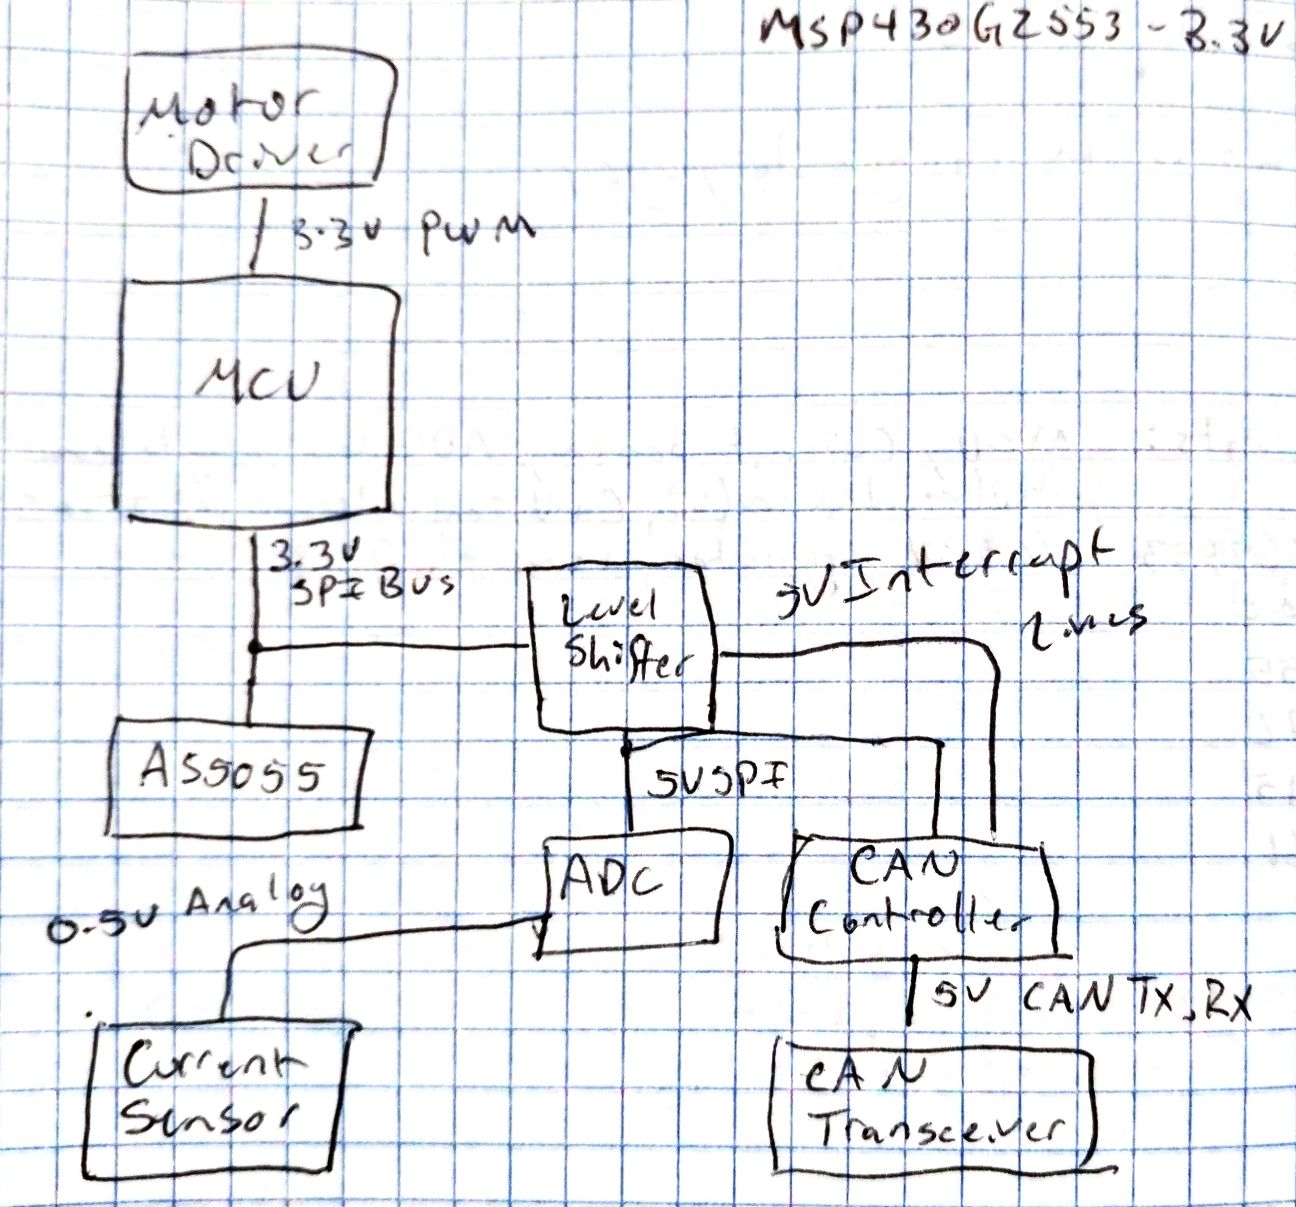 MSP430G2553 - 3.3V
Motor
Driver
3.3V PWM
MCU
3.3V
SPI Bus
Level
Shifter
5V Interrupt
Lines
AS5055
5V SPI
ADC
CAN
Controller
0-5V Analog
5V CAN TX, RX
Current
Sensor
CAN
Transceiver